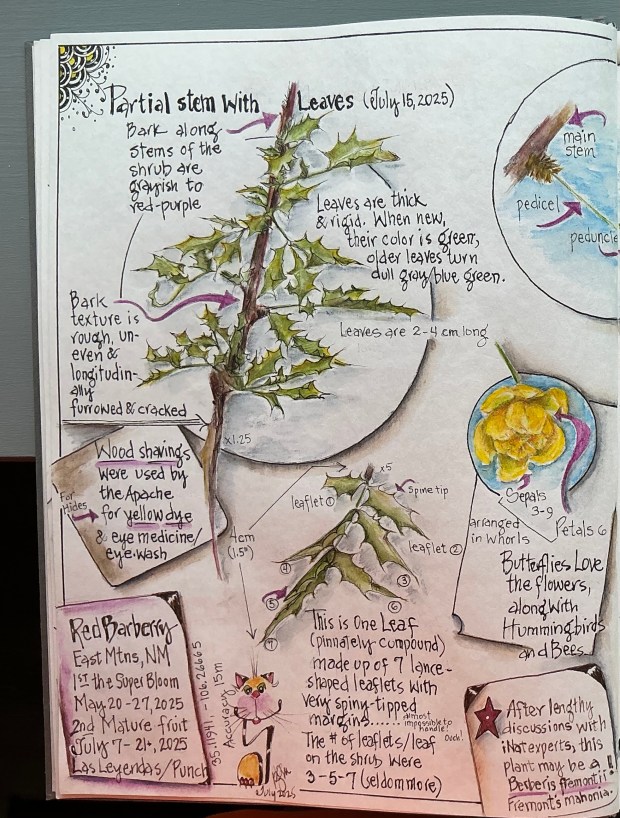 Partial stem With Leaves (July 15, 2025)
Bark along
stems of the
shrub are
grayish to
red-purple
main
stem
pedicel
peduncle
Leaves are thick
& rigid. When new,
their color is green,
older leaves turn
dull gray/blue green.
Bark
texture is
rough, un-
even &
longitudin-
ally
furrowed & cracked
Leaves are 2-4 cm long
x1.25
Wood shavings
were used by
the Apache
for yellow dye
& eye medicine/
eye-wash
For
Hides
x5
leaflet ①
Spine tip
leaflet ②
③
④
⑤
⑥
⑦
4cm
(1.5")
Sepals
3-9
arranged
in whorls
Petals 6
Butterflies Love
the flowers,
along with
Hummingbirds
and Bees
Red Barberry
East Mtns, NM
1st the Super Bloom
May 20-27, 2025
2nd Mature fruit
July 7-21, 2025
Las Leyendas/Punch
35.11941, -106.26665
Accuracy 15m
July 2025
This is One Leaf
(pinnately compound)
made up of 7 lance-
shaped leaflets with
very spiny-tipped
margins...... almost
impossible to
handle!
Ouch!
The # of leaflets/leaf
on the shrub were
3-5-7 (seldom more)
After lengthy
discussions with
iNat experts, this
plant may be a
Berberis fremontii!
Fremont's mahonia.